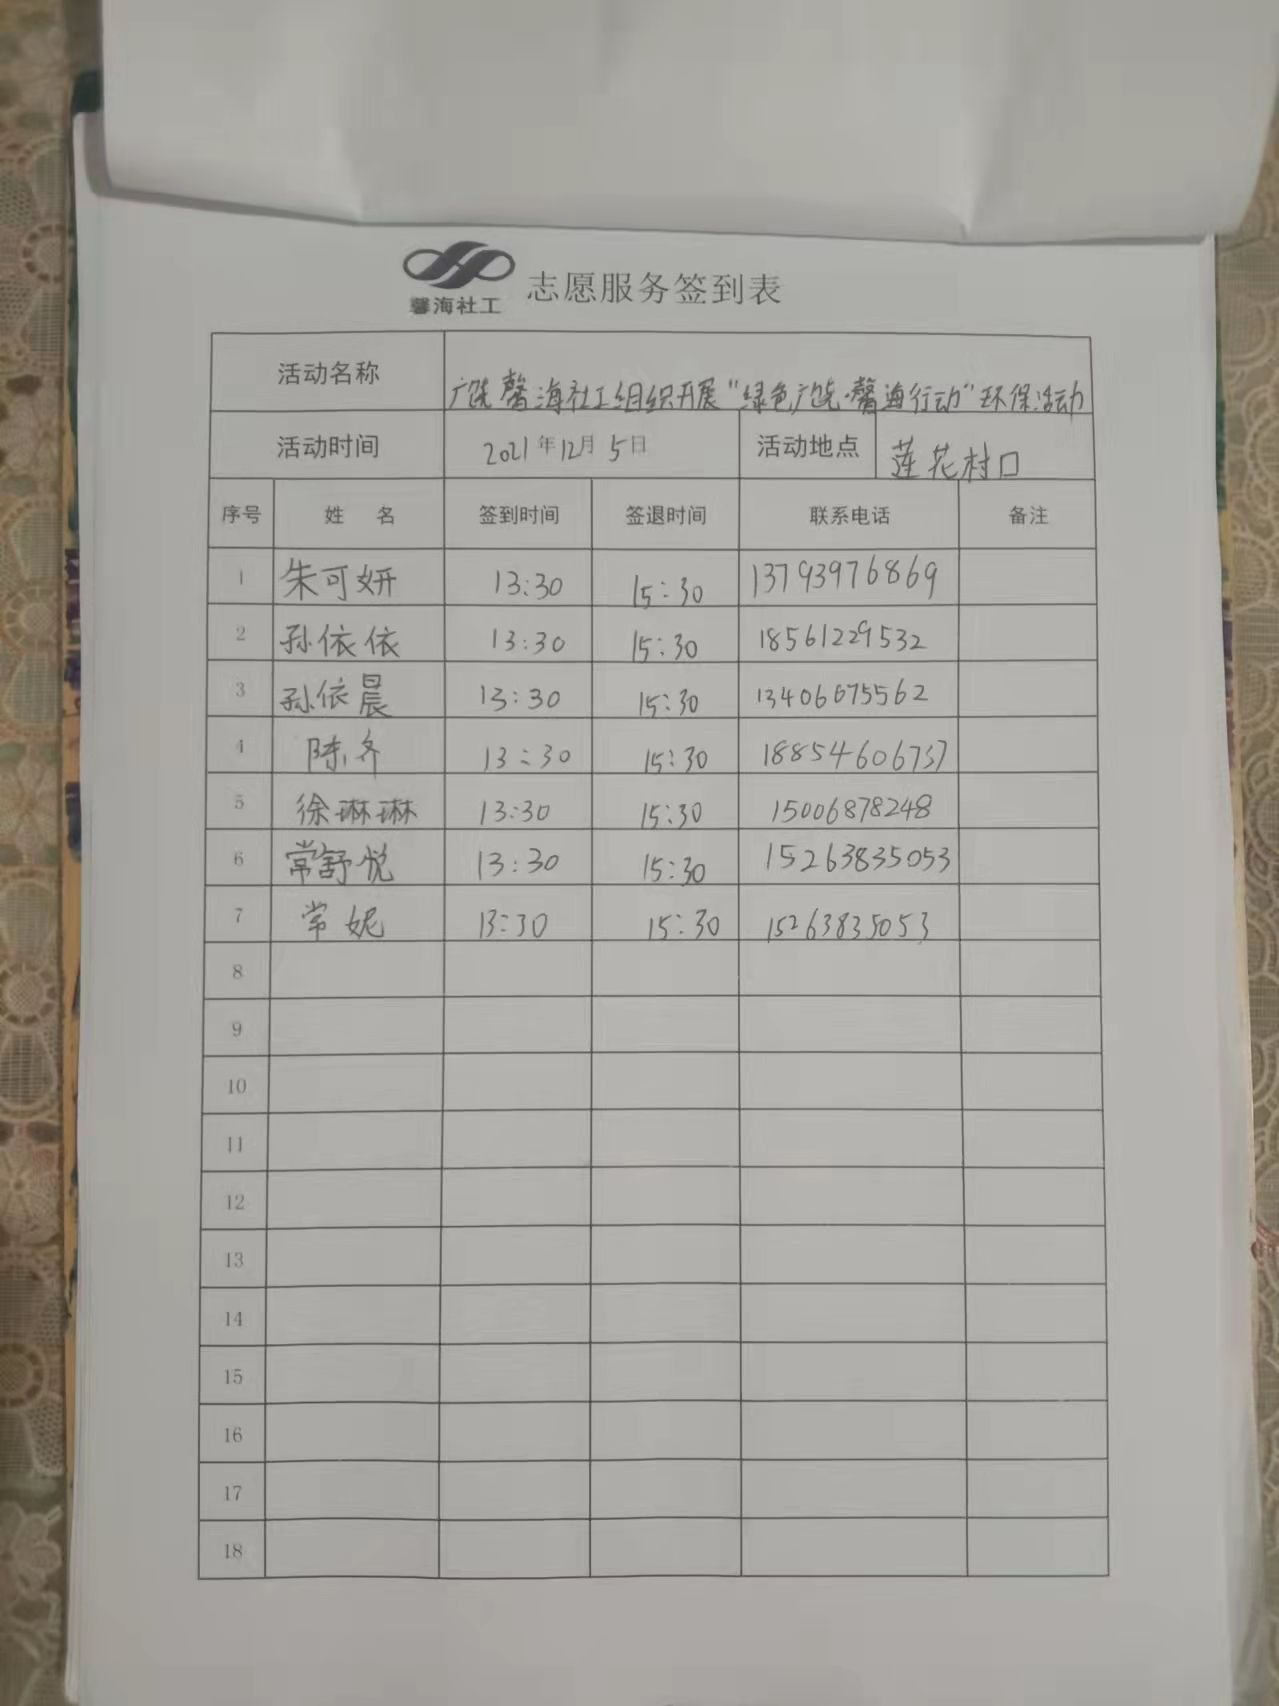 馨海社工 志愿服务签到表
活动名称 广饶馨海社工组织开展“绿色广饶·馨海行动”环保活动
活动时间 2021年12月5日 活动地点 莲花村口
序号 姓 名 签到时间 签退时间 联系电话 备注
1 朱可妍 13:30 15:30 13793976869
2 孙依依 13:30 15:30 18561229532
3 孙依晨 13:30 15:30 13406675562
4 陈齐 13:30 15:30 18854606737
5 徐琳琳 13:30 15:30 15006878248
6 常舒悦 13:30 15:30 15263835053
7 常妮 13:30 15:30 15263835053
8
9
10
11
12
13
14
15
16
17
18